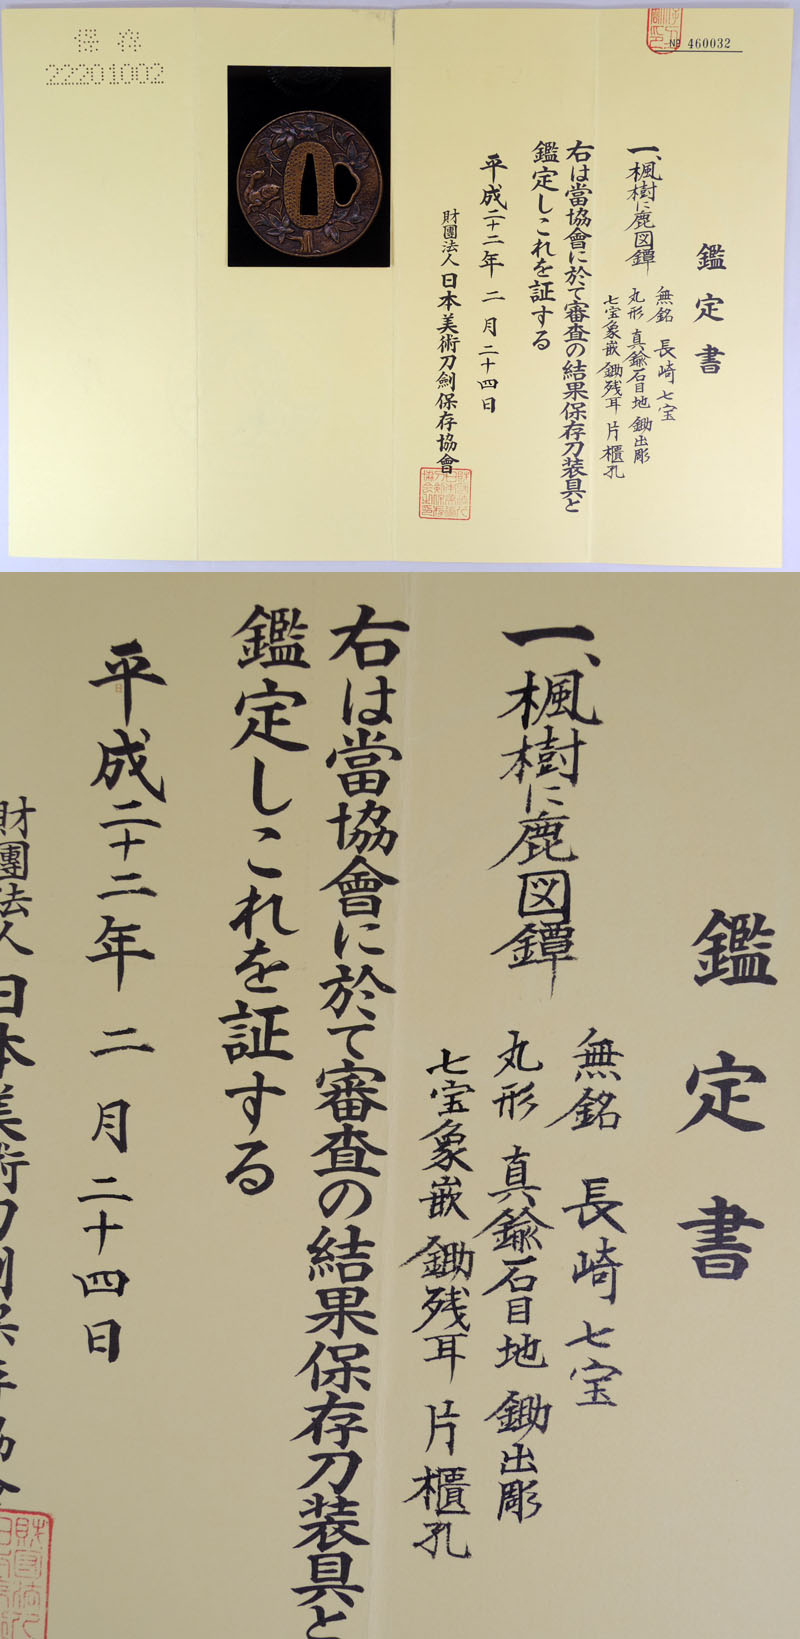 保存
22201002
№ 460032
鑑定書
一、楓樹に鹿図鐔
無銘 長崎七宝
丸形 真鍮石目地 鋤出彫
七宝象嵌 鋤残耳 片櫃孔
右は當協會に於て審査の結果保存刀装具と
鑑定しこれを証する
平成二十二年 二月二十四日
財團法人日本美術刀劍保存協會
鑑定書
一、楓樹に鹿図鐔
無銘 長崎七宝
丸形 真鍮石目地 鋤出彫
七宝象嵌 鋤残耳 片櫃孔
右は當協會に於て審査の結果保存刀装具と
鑑定しこれを証する
平成二十二年 二月二十四日
財團法人日本美術刀劍保存協會